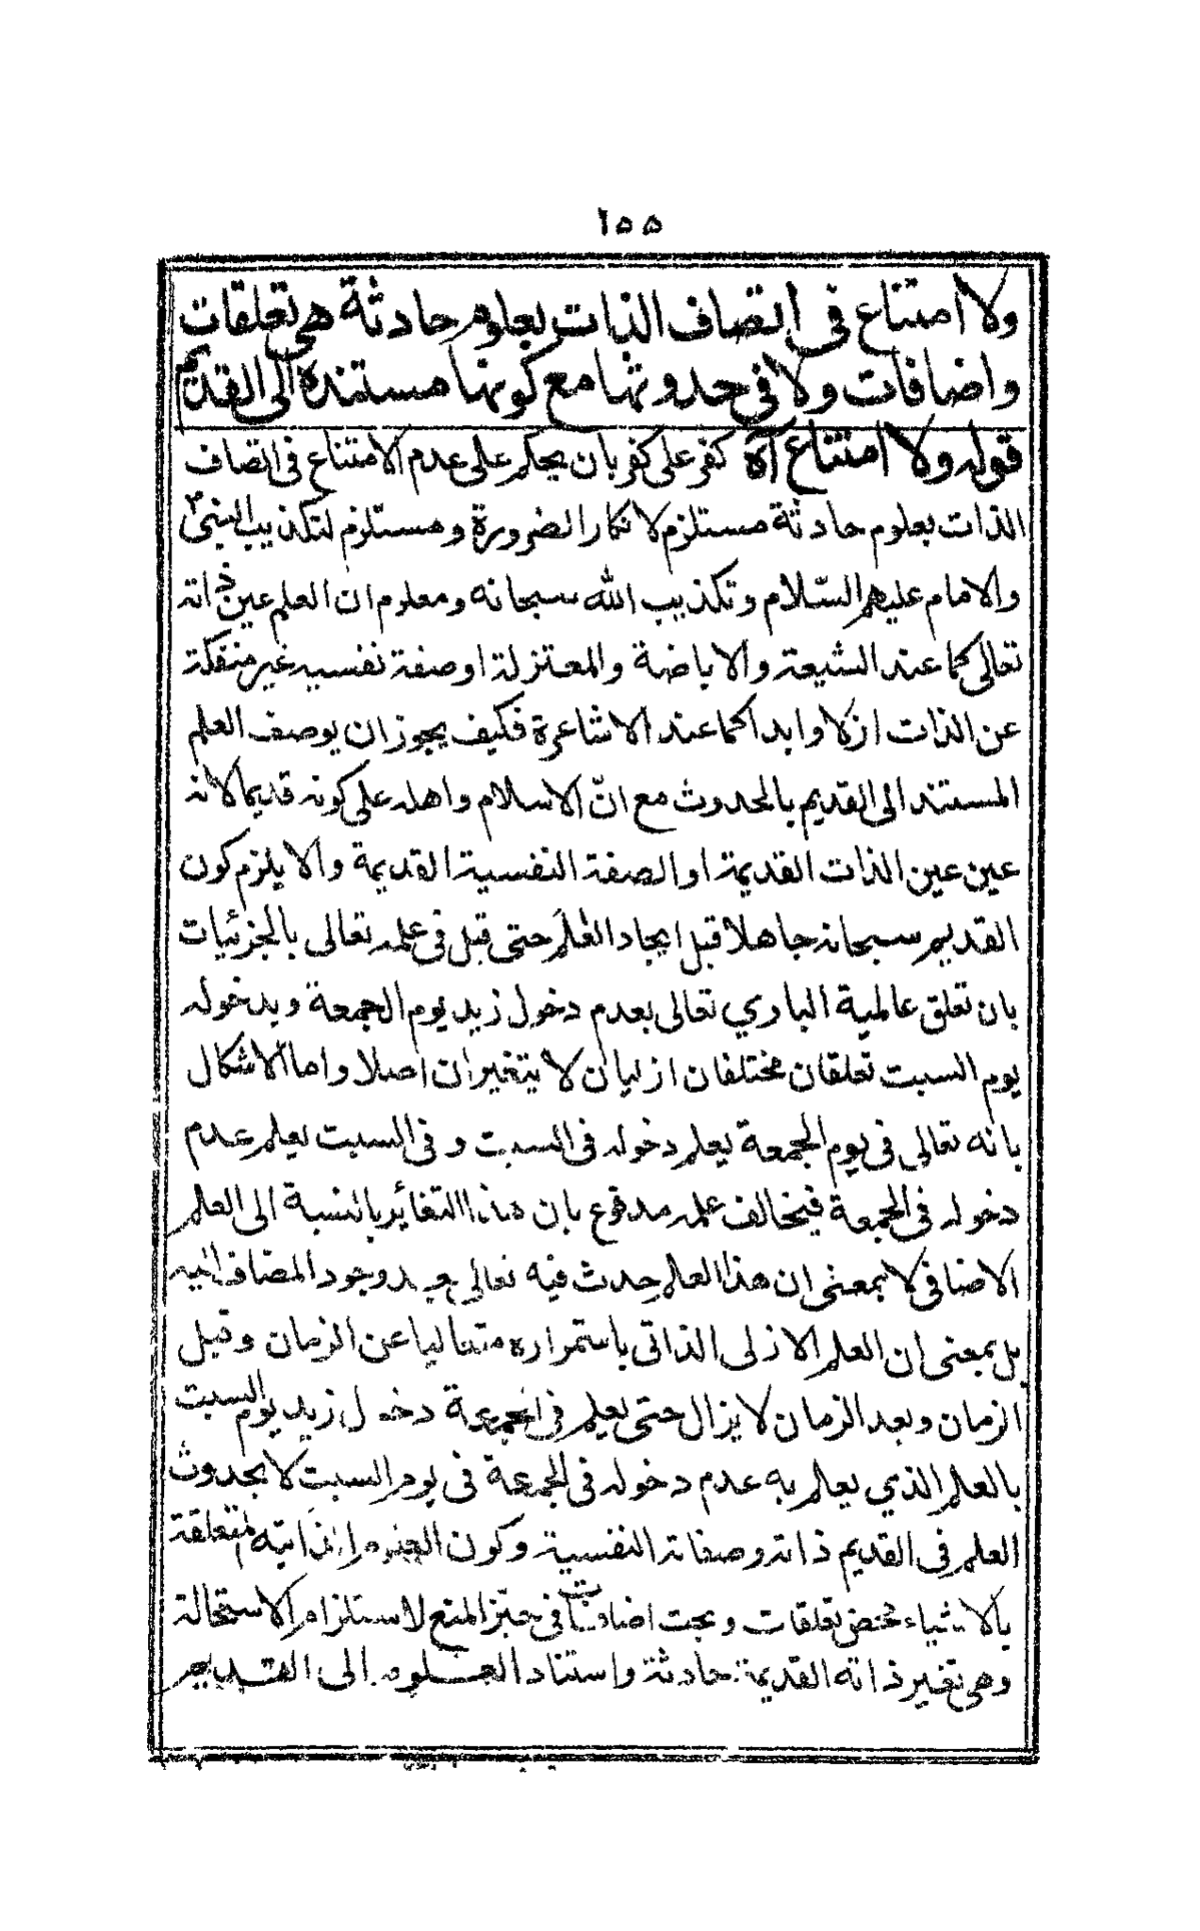 ١٥٥
ولا امتناع في اتصاف الذات بعلوم حادثة هي تعلقات
واضافات ولا في حدوثها مع كونها مستندة الى القديم
قوله ولا امتناع آه كفر على كفر بان يحكم على عدم الامتناع في اتصاف
الذات بعلوم حادثة مستلزم لانكار الضرورة ومستلزم لتكذيب النبي
والامام عليهم السّلام وتكذيب الله سبحانه ومعلوم ان العلم عين ذاته
تعالى كما عند الشيعة والاباضة والمعتزلة او صفة نفسيه غير منفكة
عن الذات ازلا وابدا كما عند الاشاعرة فكيف يجوز ان يوصف العلم
المستند الى القديم بالحدوث مع انّ الاسلام واهله على كونه قديما لانه
عين عين الذات القديمة او الصفة النفسية القديمة والا يلزم كون
القديم سبحانه جاهلا قبل ايجاد العلم حتى قبل في علمه تعالى بالجزئيات
بان تعلق عالمية الباري تعالى بعدم دخول زيد يوم الجمعة وبدخوله
يوم السبت تعلقان مختلفان ازليان لا يتغيران اصلا واما الاشكال
بانه تعالى في يوم الجمعة يعلم دخوله في السبت وفي السبت يعلم عدم
دخوله في الجمعة فيخالف علمه مدفوع بان هذا التغائر بالنسبة الى العلم
الاضافي لا بمعنى ان هذا العلم حدث فيه تعالى بعد وجود المضاف اليه
بل بمعنى ان العلم الازلى الذاتي باستمراره متعاليا عن الزمان وقبل
الزمان وبعد الزمان لا يزال حتى يعلم في الجمعة دخول زيد يوم السبت
بالعلم الذي يعلم به عدم دخوله في الجمعة في يوم السبت لا بحدوث
العلم في القديم ذاته وصفاته النفسية وكون العلوم ذاتيه متعلقة
بالاشياء محض تعلقات وبحت اضافات في حيّز المنع لاستلزام الاستحالة
وهي تغير ذاته القديمة حادثة واستناد العلوم الى القديم